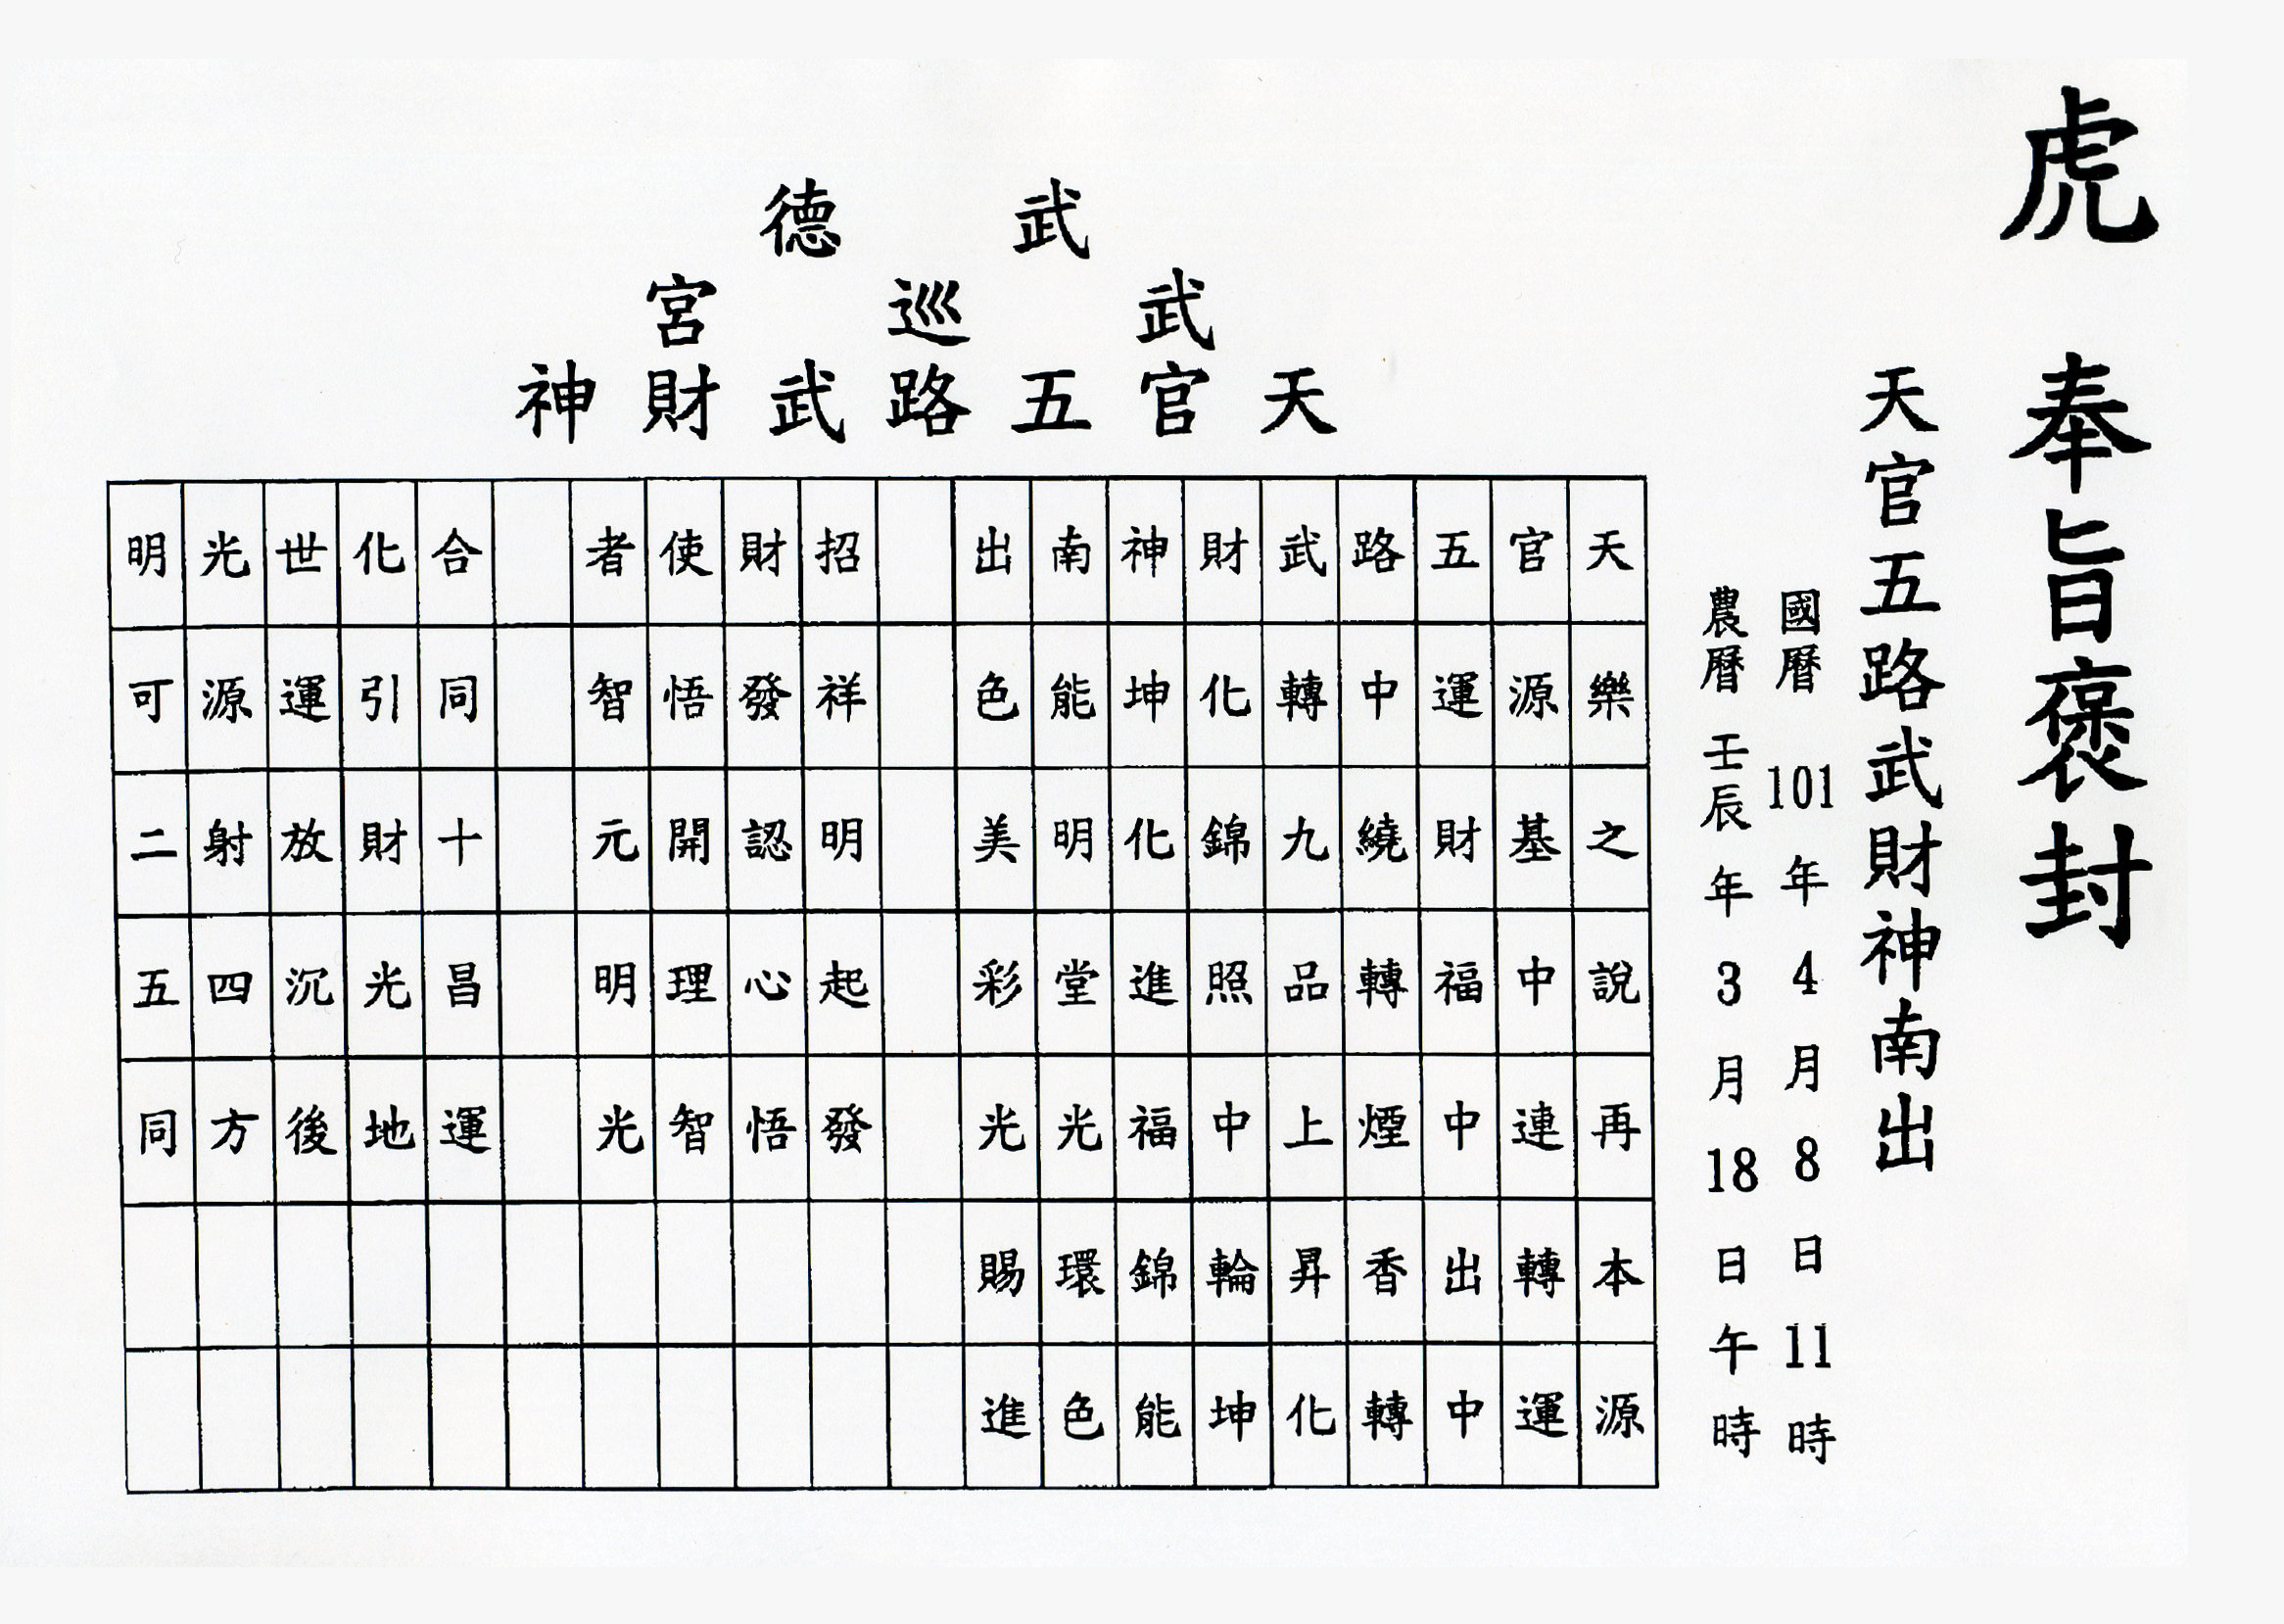 虎 奉旨褒封
天官五路武財神南出
國曆 101 年 4 月 8 日 11 時
農曆 壬辰 年 3 月 18 日 午 時
武德
武巡宮
天官五路武財神
天樂之說再本源
官源基中連轉運
五運財福中出中
路中繞轉煙香轉
武轉九品上昇化
財化錦照中輪坤
神坤化進福錦能
南能明堂光環色
出色美彩光賜進
招祥明起發
財發認心悟
使悟開理智
者智元明光
合同十昌運
化引財光地
世運放沉後
光源射四方
明可二五同